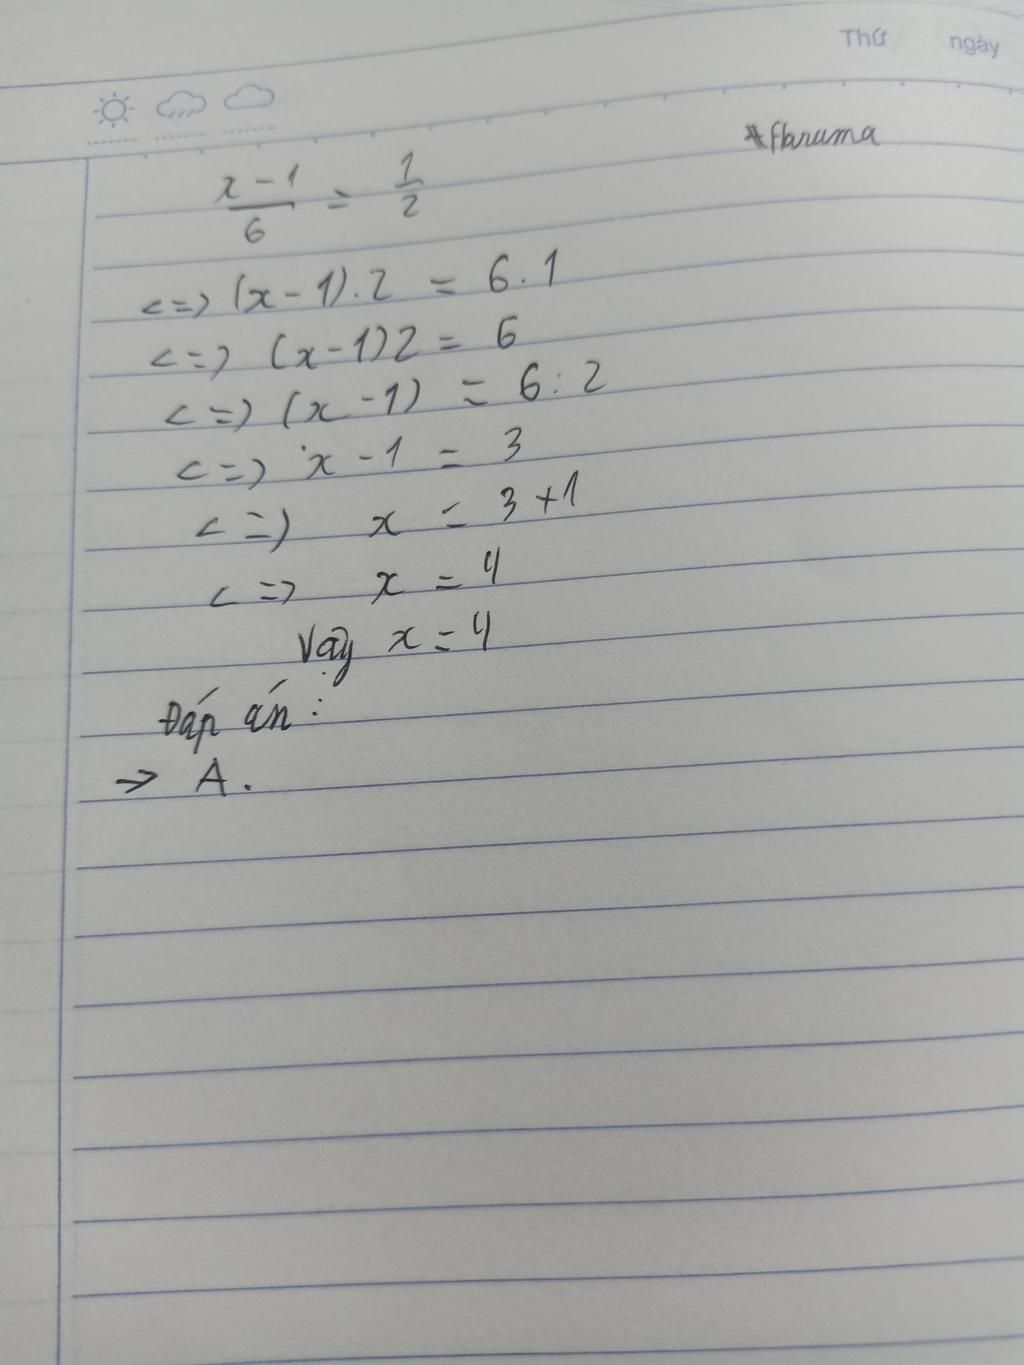 Thứ ngày
*Haruma
x - 1 / 6 = 1 / 2
<=> (x - 1) . 2 = 6 . 1
<=> (x - 1) 2 = 6
<=> (x - 1) = 6 : 2
<=> x - 1 = 3
<=> x = 3 + 1
<=> x = 4
Vậy x = 4
Đáp án :
→ A .